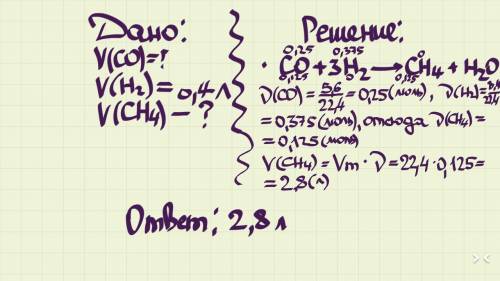 Дано:
V(CO)=?
V(H₂)= 0,4л
V(CH₄) – ?
Решение:
0,25 0,375 0
· CO + 3H₂ → CH₄ + H₂O
0,125 0 0,125
ν(CO) = 5,6/22,4 = 0,25 (моль), ν(H₂)=
= 0,375 (моль), отсюда ν(CH₄) =
= 0,125 (моль)
V(CH₄) = Vm · ν = 22,4 · 0,125 =
= 2,8 (л)
Ответ: 2,8 л